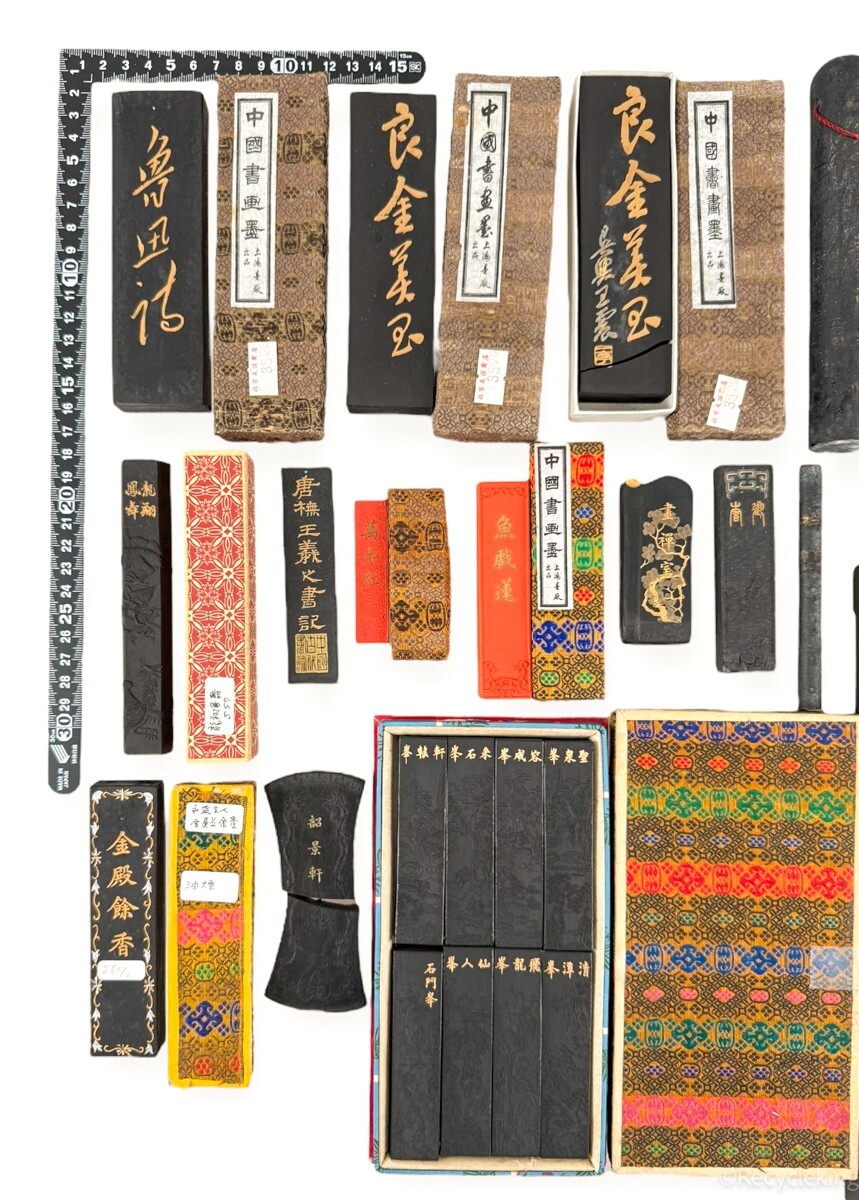 魯迅詩
中國書画墨
上海墨厰
出品
良金美玉
中國書画墨
上海墨厰
出品
良金美玉
中國書畫墨
上海墨厰
出品
龍翔
鳳舞
唐橅王羲之書記
魚戯蓮
中國書画墨
上海墨厰
出品
畫禪室
金殿餘香
油煙
韶景軒
軒轅峯
来石峯
容成峯
聖泉峯
石門峯
仙人峯
飛龍峯
清潭峯
1 2 3 4 5 6 7 8 9 10 11 12 13 14 15
2 3 4 5 6 7 8 9 10 11 12 13 14 15 16 17 18 19 20 21 22 23 24 25 26 27 28 29 30
MADE IN JAPAN
©Recycleking